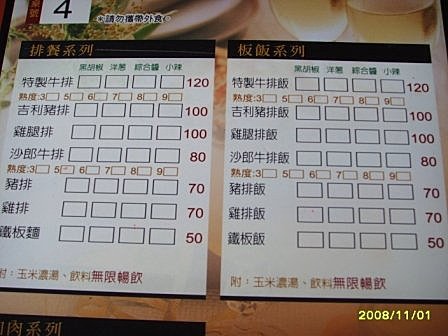 桌號
4
*請勿攜帶外食。
排餐系列
黑胡椒 洋蔥 綜合醬 小辣
特製牛排 120
熟度:3 5 6 7 8 9
吉利豬排 100
雞腿排 100
沙郎牛排 80
熟度:3 5 6 7 8 9
豬排 70
雞排 70
鐵板麵 50
附:玉米濃湯、飲料無限暢飲
板飯系列
黑胡椒 洋蔥 綜合醬 小辣
特製牛排飯 120
熟度:3 5 6 7 8 9
吉利豬排飯 100
雞腿排飯 100
沙郎牛排飯 80
熟度:3 5 6 7 8 9
豬排飯 70
雞排飯 70
鐵板飯 50
附:玉米濃湯、飲料無限暢飲
肉系列
2008/11/01